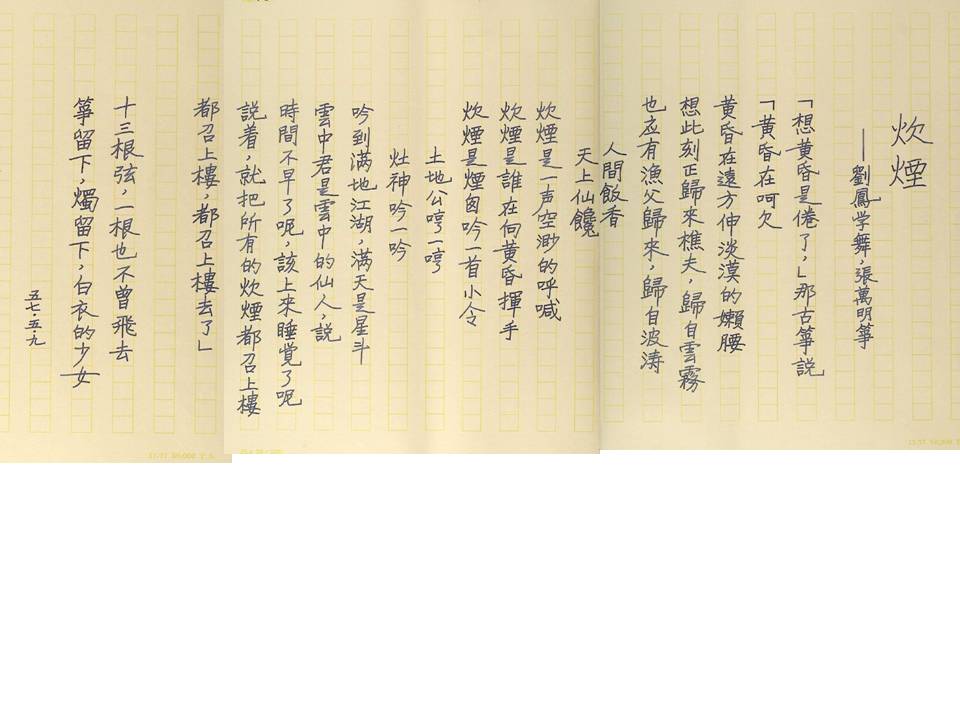 炊煙
——劉鳳学舞,張萬明箏
「想黄昏是倦了,」那古箏説
「黄昏在呵欠
黄昏在遠方伸淡漠的嬾腰
想此刻正歸來樵夫,歸自雲霧
也应有漁父歸來,歸自波涛
人間飯香
天上仙饞
炊煙是一声空渺的呼喊
炊煙是誰在向黄昏揮手
炊煙是煙囱吟一首小令
土地公哼一哼
灶神吟一吟
吟到满地江湖,满天是星斗
雲中君是雲中的仙人,説
時間不早了呢,該上來睡覺了呢
説着,就把所有的炊煙都召上樓
都召上樓,都召上樓去了」
十三根弦,一根也不曾飛去
箏留下,燭留下,白衣的少女
五七·五·九